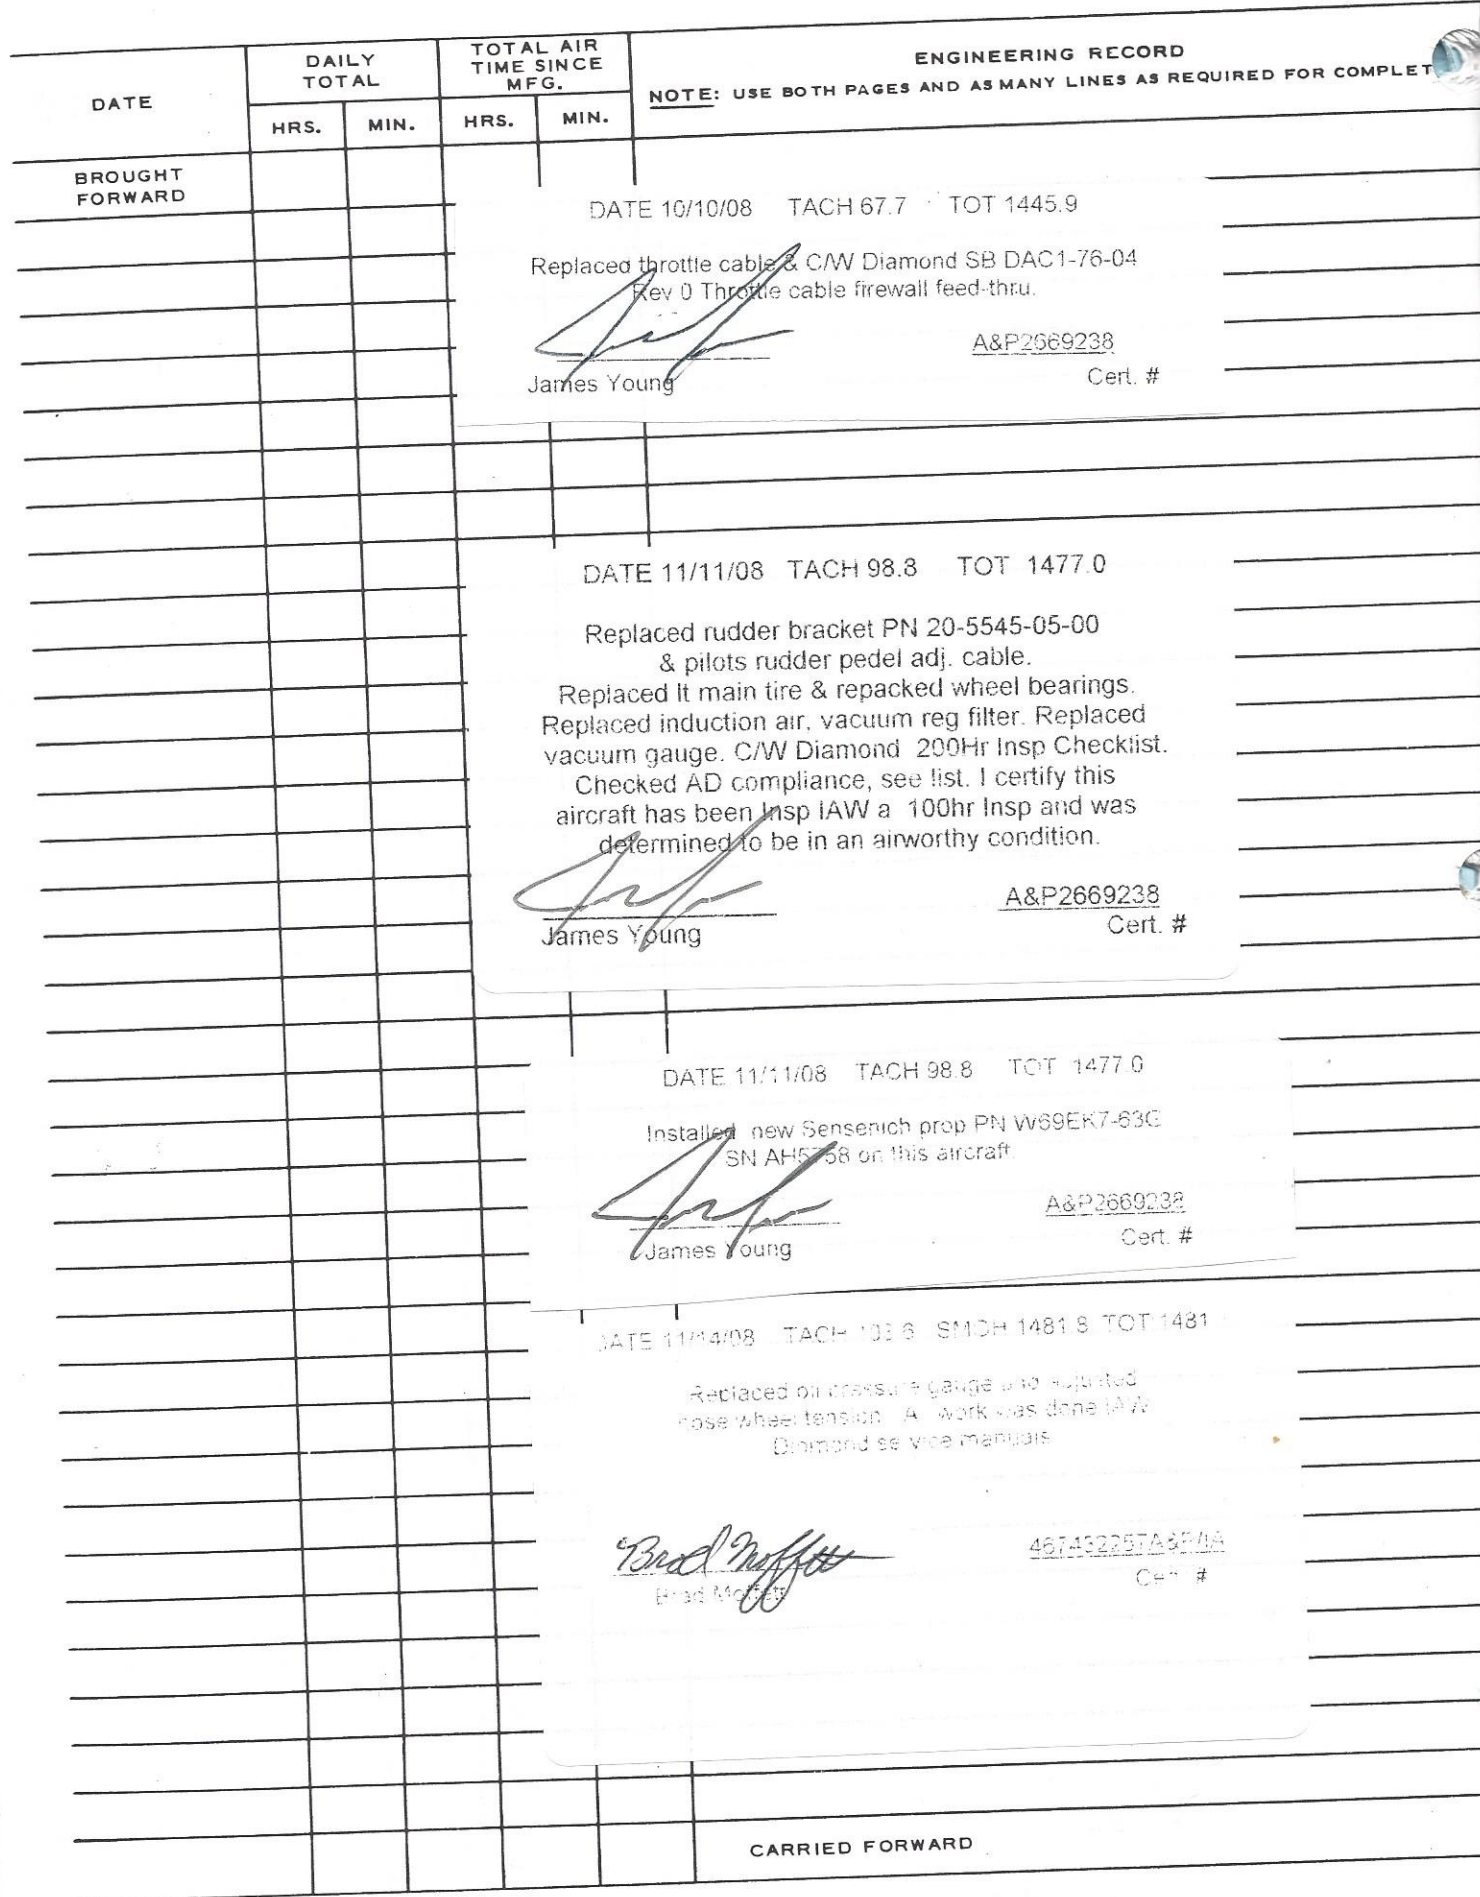 DATE
DAILY
TOTAL
HRS.
MIN.
TOTAL AIR
TIME SINCE
MFG.
HRS.
MIN.
ENGINEERING RECORD
NOTE: USE BOTH PAGES AND AS MANY LINES AS REQUIRED FOR COMPLET
BROUGHT
FORWARD
DATE 10/10/08 TACH 67.7 TOT 1445.9
Replaced throttle cable & C/W Diamond SB DAC1-76-04
Rev 0 Throttle cable firewall feed-thru.
A&P2669238
James Young
Cert. #
DATE 11/11/08 TACH 98.8 TOT 1477.0
Replaced rudder bracket PN 20-5545-05-00
& pilots rudder pedel adj. cable.
Replaced lt main tire & repacked wheel bearings.
Replaced induction air, vacuum reg filter. Replaced
vacuum gauge. C/W Diamond 200Hr Insp Checklist.
Checked AD compliance, see list. I certify this
aircraft has been Insp IAW a 100hr Insp and was
determined to be in an airworthy condition.
A&P2669238
James Young
Cert. #
DATE 11/11/08 TACH 98.8 TOT 1477.0
Installed new Sensenich prop PN W69EK7-63G
SN on this aircraft.
A&P2669238
James Young
Cert. #
DATE 11/14/08 TACH SMOH 1481.8 TOT 1481
Replaced oil pressure gauge and adjusted
nose wheel tension work was done IAW
Diamond service manuals
Brad Moffett
A&P/IA
Brad Moffett
Cert. #
CARRIED FORWARD